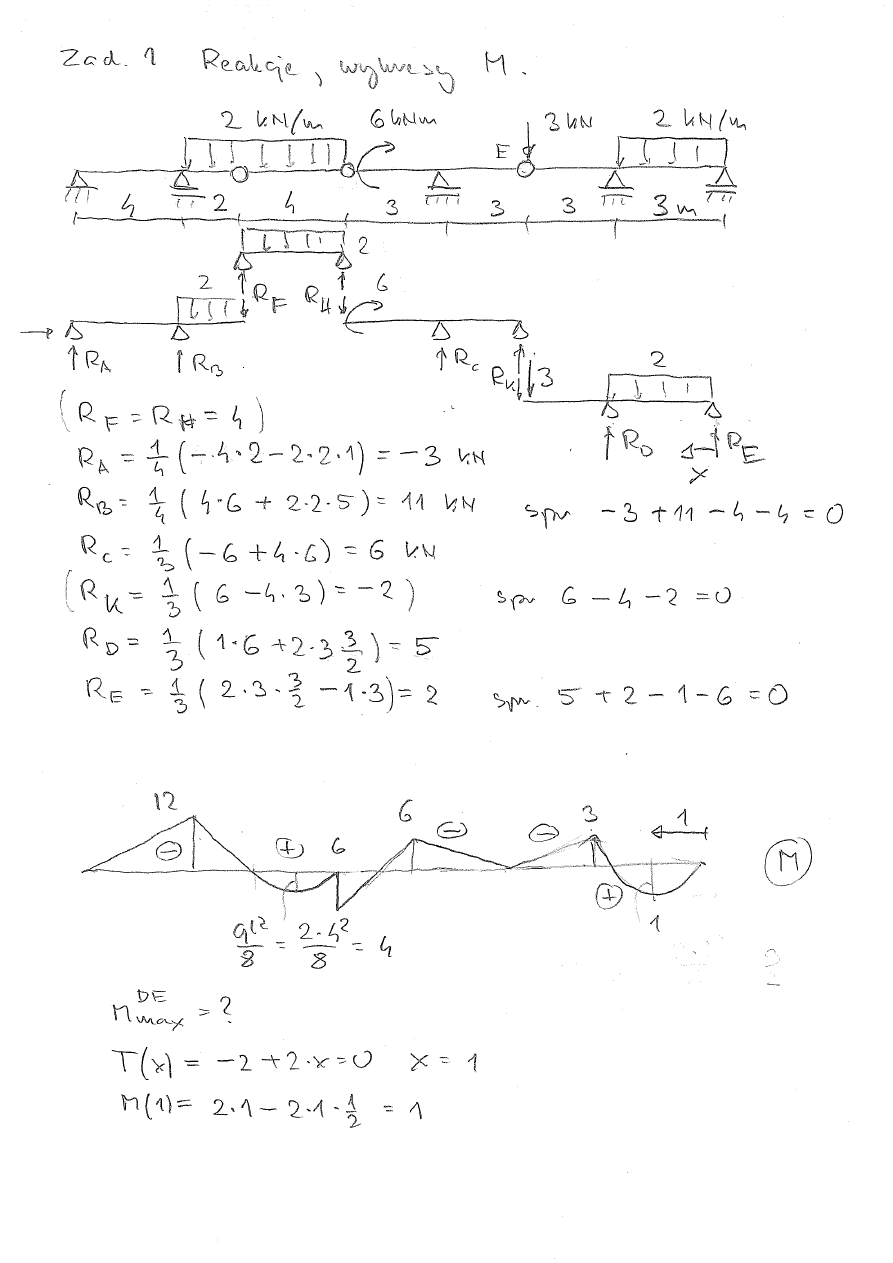 Zad. 1 Reakcje, wykresy M.
2 kN/m 6 kNm E 3 kN 2 kN/m
4 2 4 3 3 3 3 m
2
2 R_F R_H 6
R_A R_B R_C R_K 3 2
R_D x R_E
(R_F = R_H = 4)
R_A = 1/4 (-4·2-2·2·1) = -3 kN
R_B = 1/4 (4·6 + 2·2·5) = 11 kN spr -3+11-4-4=0
R_C = 1/3 (-6+4·6) = 6 kN
(R_K = 1/3 (6-4·3) = -2) spr 6-4-2=0
R_D = 1/3 (1·6+2·3 3/2) = 5
R_E = 1/3 (2·3·3/2 - 1·3) = 2 spr. 5+2-1-6=0
12 6 - - 3 1
- + 6 + M
ql²/8 = 2·4²/8 = 4 1
M_max^DE = ?
T(x) = -2+2·x=0 x = 1
M(1) = 2·1-2·1·1/2 = 1